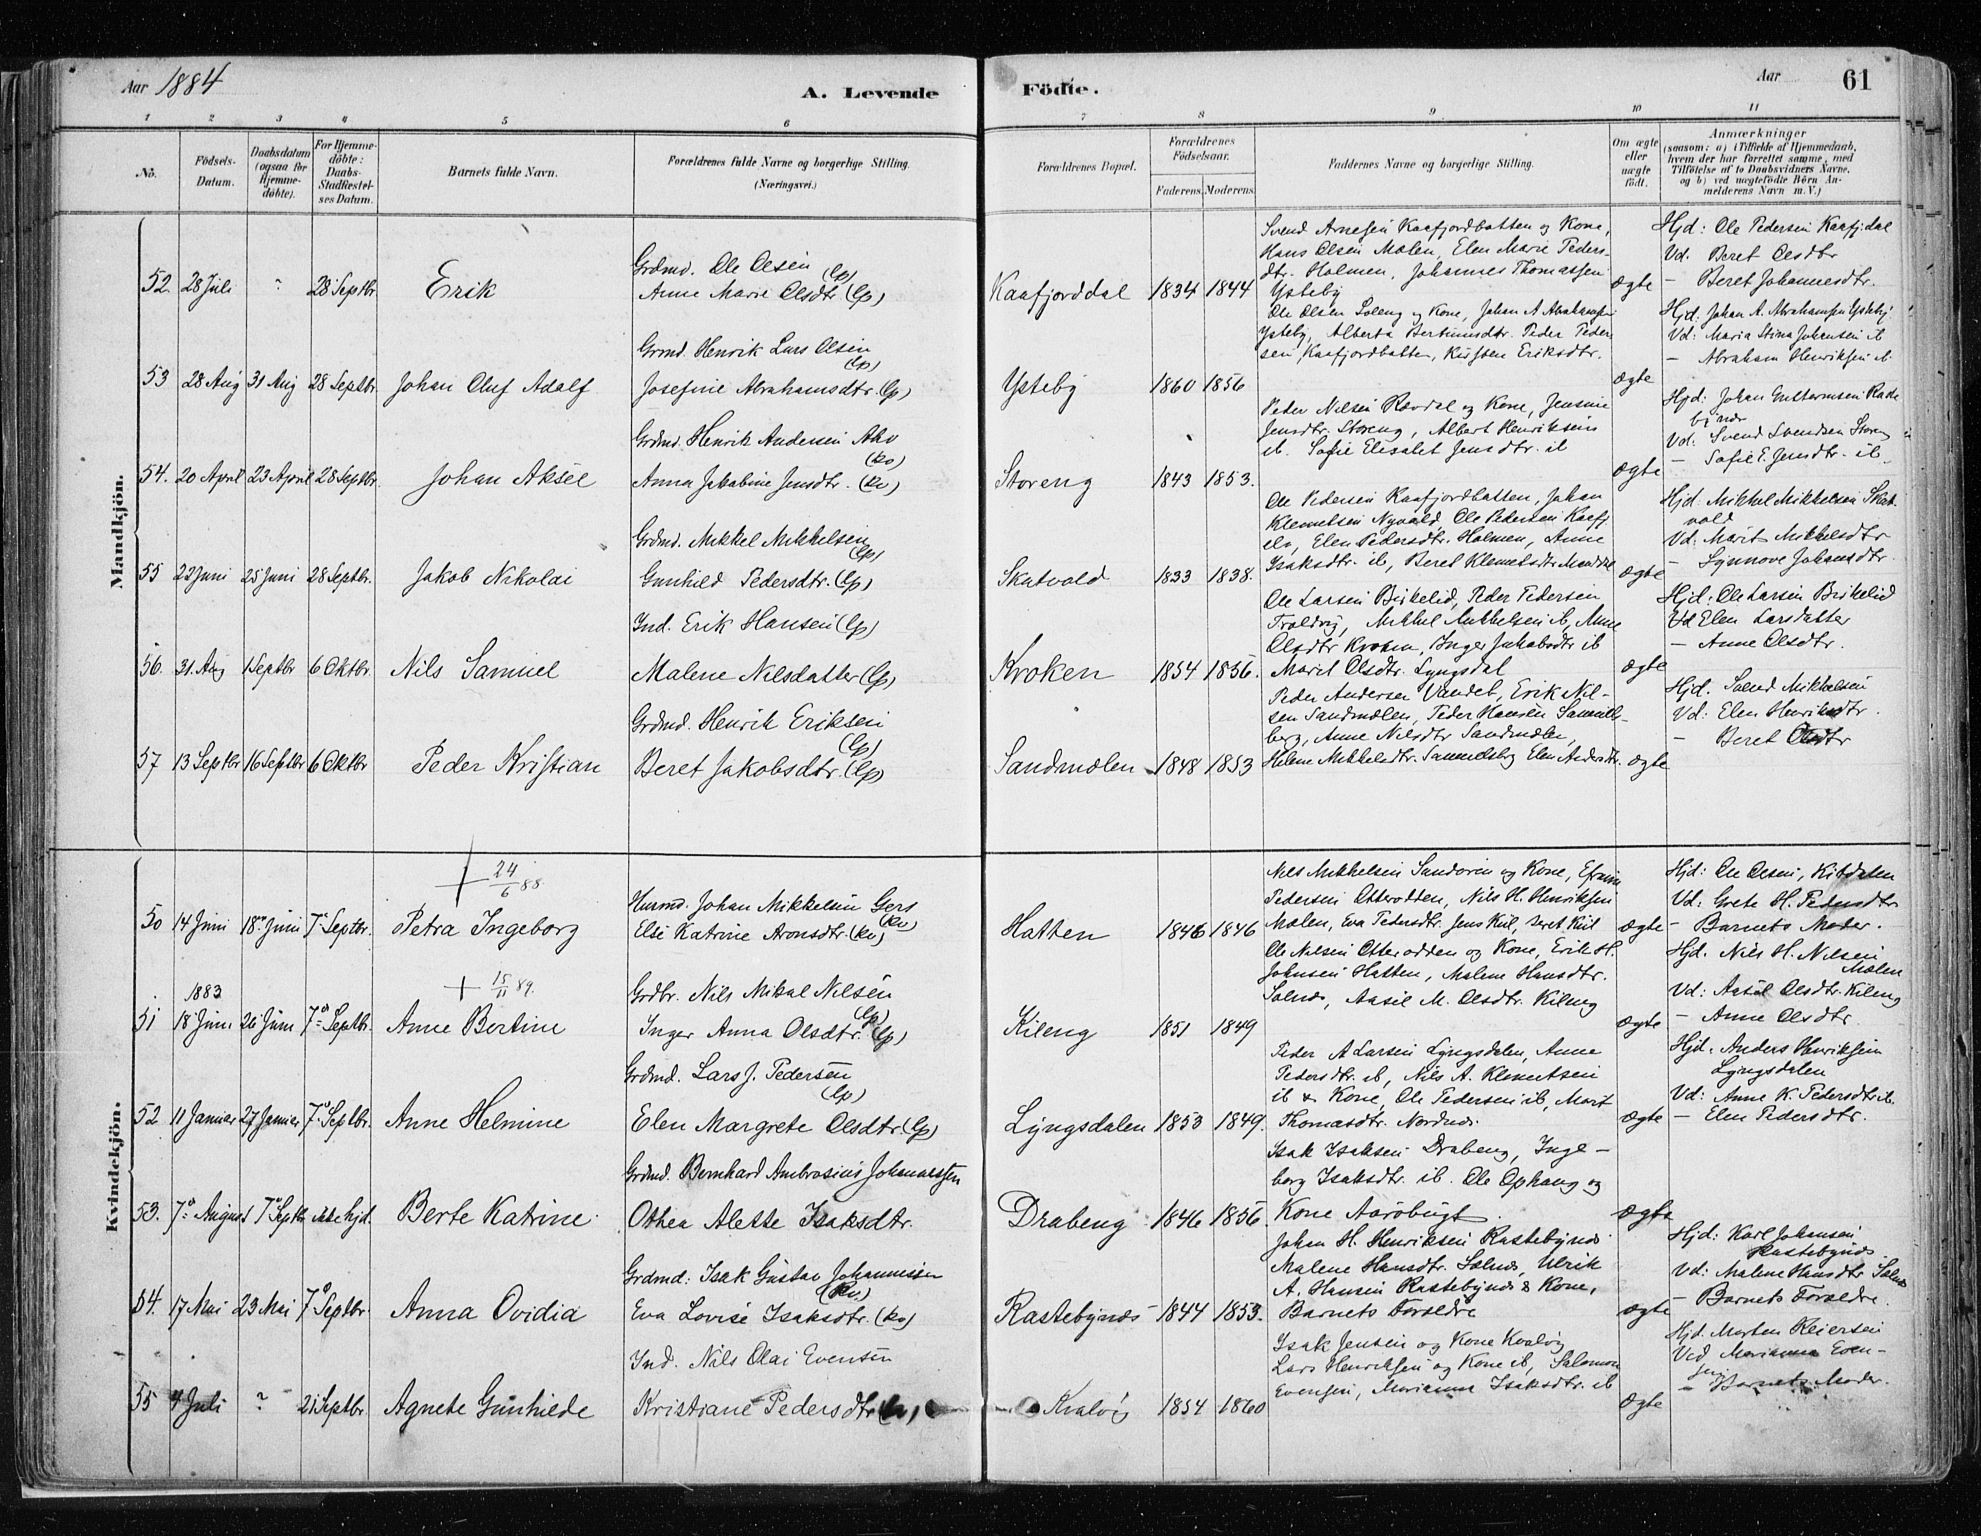 Aar 1884
A. Levende Födte.
Aar 61
1 2 3 4 5 6 7 8 9 10 11
No.
Födsels-Datum.
Daabsdatum (ogsaa for Hjemme-døbte).
For Hjemme-døbte: Daabs-Stadfæstel-ses Datum.
Barnets fulde Navn.
Forældrenes fulde Navne og borgerlige Stilling. (Næringsvei.)
Forældrenes Bopæl.
Forældrenes Födselsaar.
Faderens. Moderens.
Faddernes Navne og borgerlige Stilling.
Om ægte eller uægte födt.
Anmærkninger
(saasom: a) i Tilfælde af Hjemmedaab, hvem der har forrettet samme, med Tilföielse af to Daabsvidners Navne, og b) ved uægtefödte Börn An-melderens Navn m. V.)
Mandkjön.
52. 28 Juli " 28 Septbr Erik
Grdmd. Ole Olsen (lp)
Anne Marie Olsdtr (lp)
Kaafjorddal 1834 1844
Svend Arnesen Kaafjordbotten og Kone,
Hans Olsen Molen, Elen Marie Peders-
dtr. Holmen, Johannes Thomassen
Ysteby
ægte
Hjd: Ole Pedersen Kaafjdal
Vd. Beret Olsdtr
- Beret Johannesdtr.
53 28 Aug 31 Aug 28 Septbr. Johan Oluf Adolf
Grmd. Henrik Lars Olsen (lp)
Josefine Abrahamsdtr. (lp)
Ysteby 1860 1856
Ole Olsen Loleng og Kone, Johan A Abrahamsen
Ysteby, Alberta Bertinusdtr. Peder Peder
sen Kaafjordbotten, Kirsten Eriksdtr.
ægte
Hjd: Johan A. Abrahamsen Ysteby
Vd: Maria Stina Johansen ib
- Abraham Henriksen ib
54. 20 April 23 April 28 Septbr. Johan Aksel
Grdmd. Henrik Andersen Aho (kv)
Anna Jakobine Jensdtr. (kv)
Storeng 1843 1853.
Peder Nilsen Rovdal og Kone, Jensine
Jensdtr. Storeng, Albert Henriksen
ib. Sofie Elisabet Jensdtr. ib
ægte
Vd. Svend Svendsen Storeng
- Sofie E. Jensdtr. ib.
55 22 Juni 25 Juni 28 Septbr. Jakob Nikolai
Grdmd. Mikkel Mikkelsen (lp)
Gunhild Pedersdtr. (lp)
Skatvold 1833 1838.
Ole Pedersen Kaafjordbotten, Johan
Klemetsen Nyvold, Ole Pedersen Kaafj
elv, Elen Pedersdtr. Holmen, Anne
Isaksdtr. ib, Beret Klemetsdtr Manddal
ægte
Hjd. Mikkel Mikkelsen Skat-
vold
Vd: Marit Mikkelsdtr
- Synnove Johansdtr.
56. 31 Aug 1 Septbr 6 Oktbr. Nils Samuel
Ind. Erik Hansen (lp)
Malene Nilsdatter (lp)
Kroken 1854 1856.
Ole Larsen Birkelid, Peder Pedersen
Troldvig, Mikkel Mikkelsen ib, Anne
Olsdtr Kroken, Inger Jakobsdtr ib
Marit Olsdtr. Lyngsdal
ægte
Hjd: Ole Larsen Birkelid
Vd Elen Larsdatter
- Anne Olsdtr.
57 13 Septbr 16 Septbr 6 Oktbr Peder Kristian
Grdmd. Henrik Eriksen (lp)
Beret Jakobsdtr. (lp)
Sandmælen 1848 1853
Peder Andersen Vandet, Erik Nil-
sen Sandmælen, Peder Hansen Samuels-
berg, Anne Nilsdtr Sandmælen,
Helene Mikkelsdtr. Samuelsbg Elen Andersdtr.
ægte
Hjd. Svend Mikkelsen
Vd: Elen Henriksdtr.
- Beret Olsdtr
Kvindekjön.
+ 24/6 88
50 14 Juni 18de Juni 7de Septbr. Petra Ingeborg
Husmd. Johan Mikkelsen Gers (kv)
Else Katrine Aronsdtr. (kv)
Hatten 1846 1846
Nils Mikkelsen Sandøren og Kone, Efraim
Pedersen Otterodden, Nils H. Henriksen
Mælen, Eva Pedersdtr. Jens Kiil, Beret Kiil
ægte
Hjd: Ole Olsen, Kitdalen
Vd: Grete H. Pedersdtr
- Barnets Moder.
+ 15/11 89.
1883
51 18 Juni 26 Juni 7de Septbr. Anne Bertine
Grdbr. Nils Mikal Nilsen (lp)
Inger Anna Olsdtr. (lp)
Kileng 1851 1849
Ole Nilsen Otterodden og Kone, Erik H.
Johnsen Hatten, Malene Hansdtr.
Solnæs, Aasil M. Olsdtr. Kileng
ægte
Hjd. Nils H. Nilsen
Mælen
Vd: Aasil Olsdtr. Kileng
- Anne Olsdtr.
52 11 Januar 27 Januar 7de Septbr. Anne Helmine
Grdmd. Lars J. Pedersen (lp)
Elen Margrete Olsdtr (lp)
Lyngsdalen 1853 1849.
Peder A Larsen Lyngsdalen, Anne
Pedersdtr. ib, Nils A. Klemetsen
ib & Kone, Ole Pedersen ib, Marit
Thomasdtr. Nordnæs
ægte
Hjd: Anders Henriksen
Lyngsdalen
Vd: Anne K. Pedersdtr ib.
- Elen Pedersdtr.
53. 7de August 7de Septbr ikke hjd. Berte Katrine
Grdmd. Bernhard Ambrosius Johannessen
Othea Alette Isaksdtr.
Drabeng 1846 1856.
Isak Isaksen Drabeng, Inge-
borg Isaksdtr. ib. Ole Ophaug og
Kone Aarøbugt.
ægte
54. 17 Mai 23 Mai 7de Septbr. Anna Ovidia
Grdmd: Isak Gustav Johannessen (kv)
Eva Lovise Isaksdtr. (kv)
Rastebynæs 1844 1853.
Johan H. Henriksen Rastebynæs
Malene Hansdtr. Solnæs, Ulrik
A. Hansen Rastebynæs & Kone,
Barnets Forældre
ægte
Hjd: Karl Johansen
Rastebynæs
Vd: Malene Hansdtr. Solnæs
- Barnets Forældre.
55 7 Juli ? 21 Septbr. Agnete Gunhilde
Ind. Nils Olai Evensen
Kristiane Pedersdtr
Kvalvig 1854 1860
Isak Jensen og Kone Kvalvig
Lars Henriksen og Kone ib, Salomon
Evensen, Marianna Isaksdtr. ib
ægte
Hjd. Morten Reiersen
Ved Marianna Even-
sen
- Barnets Moder.